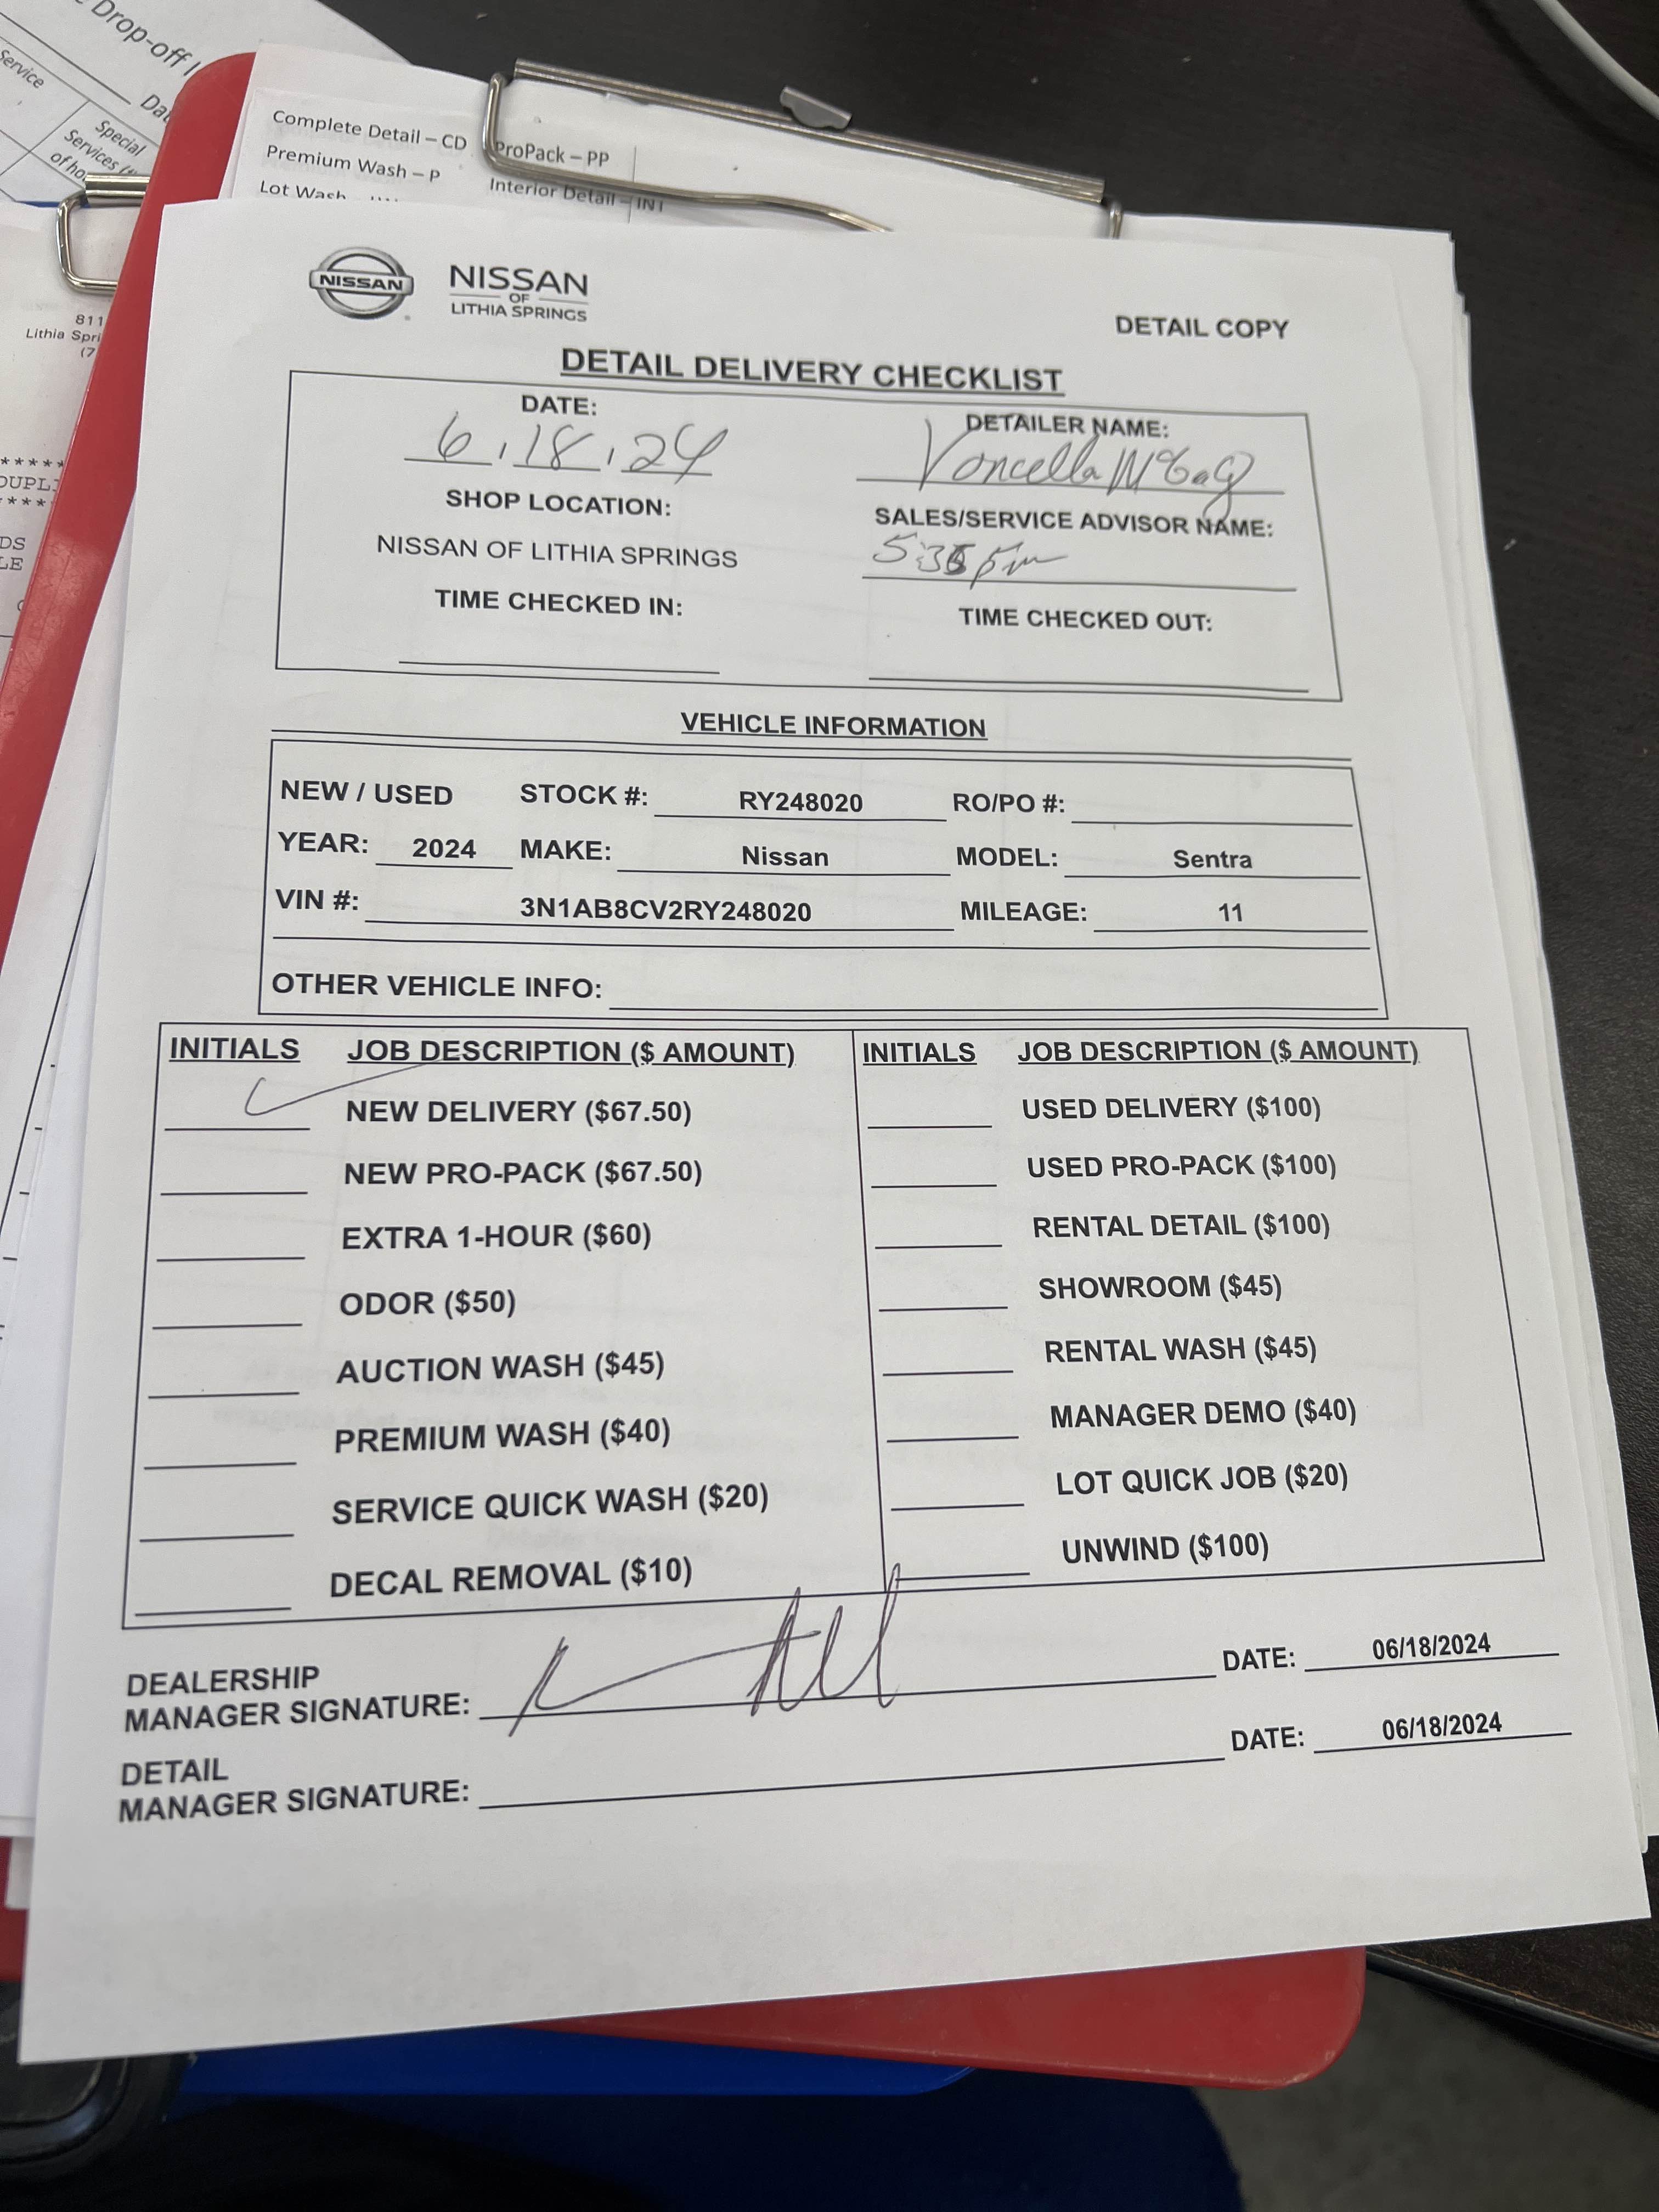 Drop-off
Service
Special
Services
of ho
Complete Detail – CD
ProPack – PP
Premium Wash – P
Interior Detail – INT
Lot Wash
811
Lithia Spri
(7
*****
DUPL
****
DS
LE
NISSAN
NISSAN
OF
LITHIA SPRINGS
DETAIL COPY
DETAIL DELIVERY CHECKLIST
DATE:
6.18.24
DETAILER NAME:
Voncella
SHOP LOCATION:
NISSAN OF LITHIA SPRINGS
SALES/SERVICE ADVISOR NAME:
TIME CHECKED IN:
TIME CHECKED OUT:
VEHICLE INFORMATION
NEW / USED STOCK #: RY248020 RO/PO #:
YEAR: 2024 MAKE: Nissan MODEL: Sentra
VIN #: 3N1AB8CV2RY248020 MILEAGE: 11
OTHER VEHICLE INFO:
INITIALS JOB DESCRIPTION ($ AMOUNT)
NEW DELIVERY ($67.50)
NEW PRO-PACK ($67.50)
EXTRA 1-HOUR ($60)
ODOR ($50)
AUCTION WASH ($45)
PREMIUM WASH ($40)
SERVICE QUICK WASH ($20)
DECAL REMOVAL ($10)
INITIALS JOB DESCRIPTION ($ AMOUNT)
USED DELIVERY ($100)
USED PRO-PACK ($100)
RENTAL DETAIL ($100)
SHOWROOM ($45)
RENTAL WASH ($45)
MANAGER DEMO ($40)
LOT QUICK JOB ($20)
UNWIND ($100)
DEALERSHIP
MANAGER SIGNATURE: DATE: 06/18/2024
DETAIL
MANAGER SIGNATURE: DATE: 06/18/2024